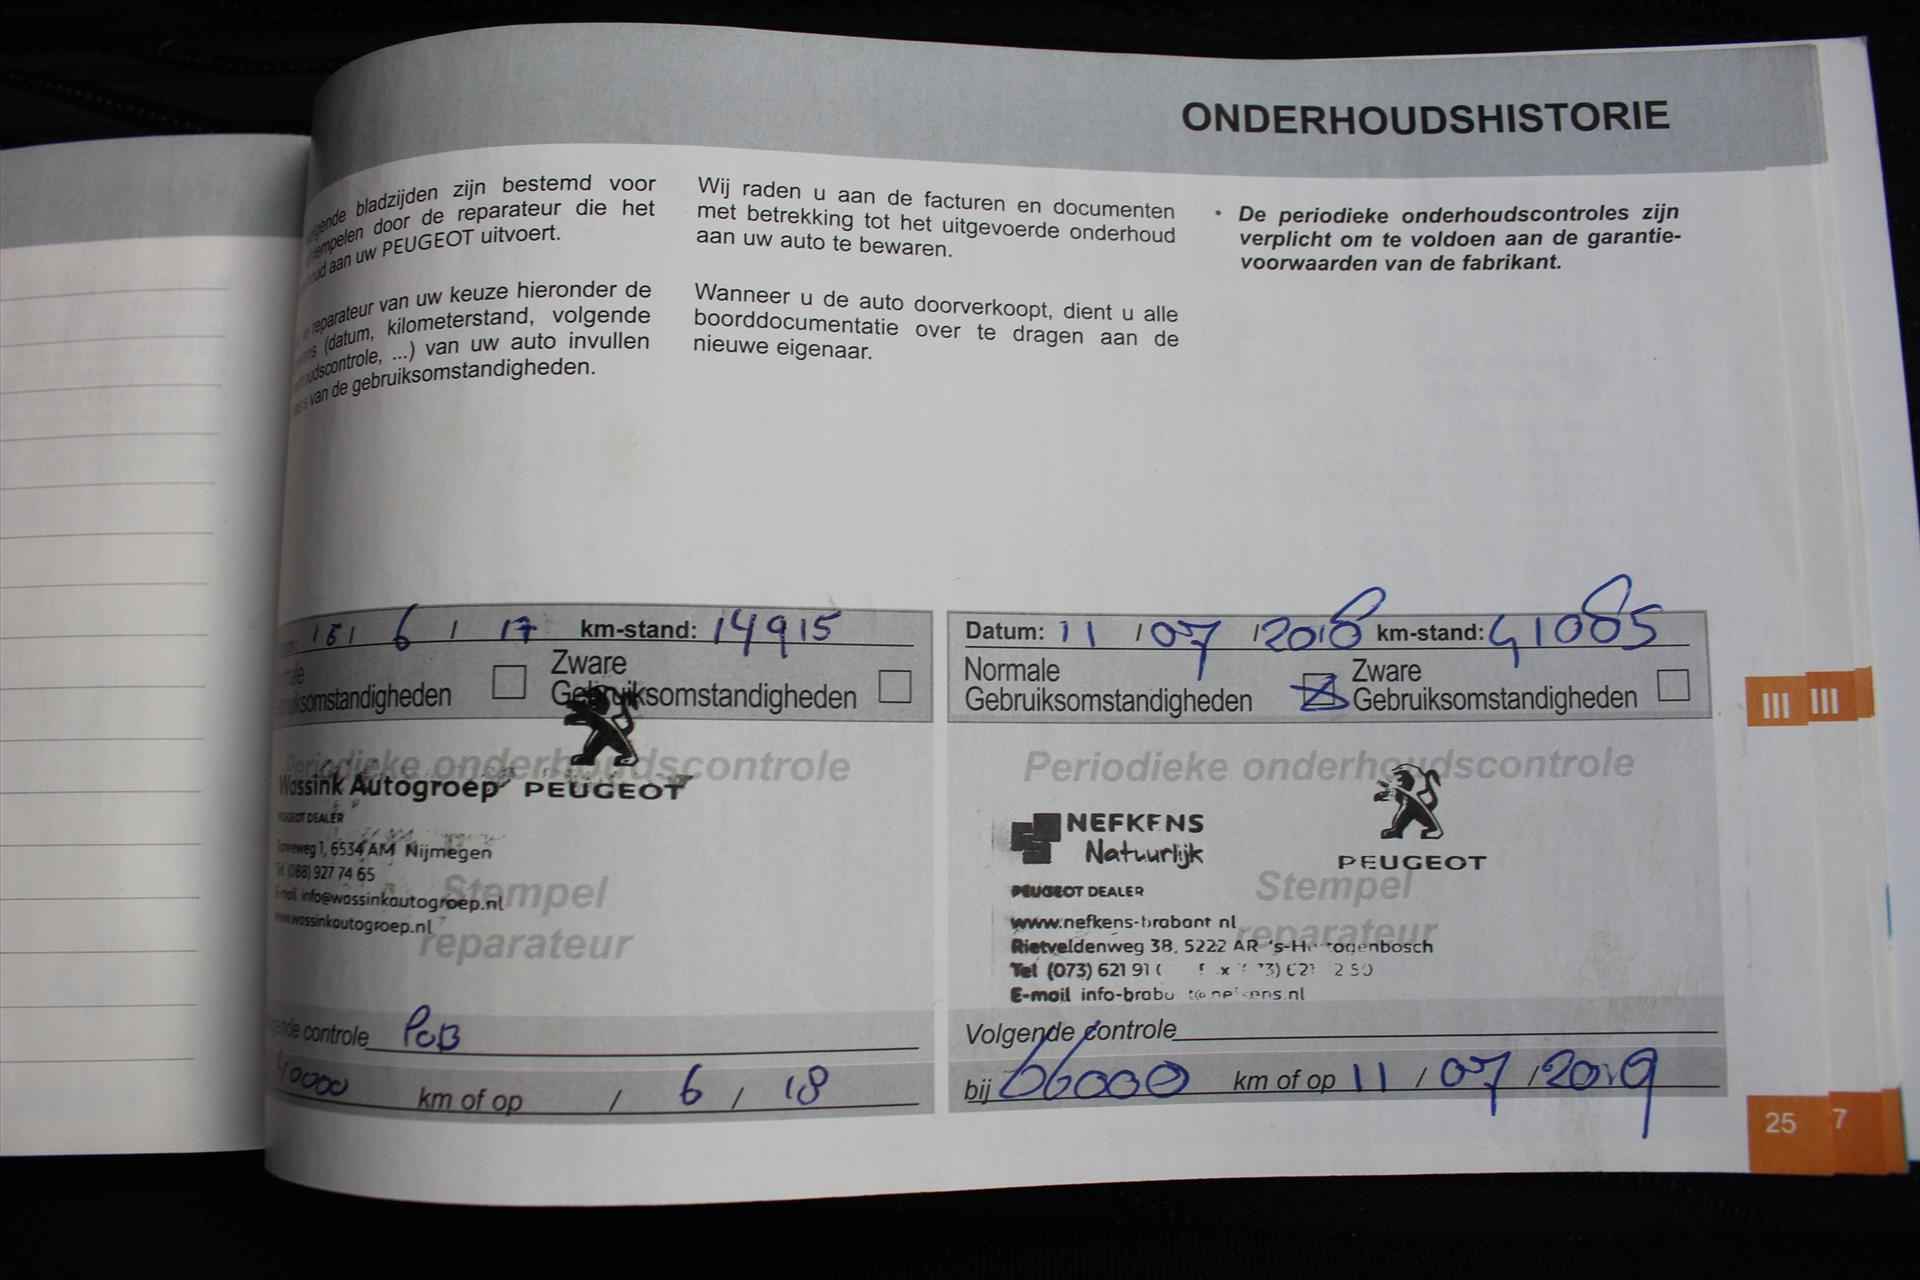 ONDERHOUDSHISTORIE
bladzijden zijn bestemd voor
door de reparateur die het
aan uw PEUGEOT uitvoert.
reparateur van uw keuze hieronder de
(datum, kilometerstand, volgende
...) van uw auto invullen
van de gebruiksomstandigheden.
Wij raden u aan de facturen en documenten
met betrekking tot het uitgevoerde onderhoud
aan uw auto te bewaren.
Wanneer u de auto doorverkoopt, dient u alle
boorddocumentatie over te dragen aan de
nieuwe eigenaar.
• De periodieke onderhoudscontroles zijn
verplicht om te voldoen aan de garantie-
voorwaarden van de fabrikant.
/ 6 / 17 km-stand: 14915
Zware
Gebruiksomstandigheden
Periodieke onderhoudscontrole
Wassink Autogroep PEUGEOT
DEALER
1, 6534 AM Nijmegen
(088) 927 74 65
info@wassinkautogroep.nl
www.wassinkautogroep.nl
Stempel
reparateur
controle PCB
km of op / 6 / 18
Datum: 11 / 07 / 2018 km-stand: 41085
Normale
Gebruiksomstandigheden
Zware
Gebruiksomstandigheden
Periodieke onderhoudscontrole
NEFKENS
Natuurlijk
PEUGEOT
PEUGEOT DEALER
Stempel
reparateur
www.nefkens-brabant.nl
Rietveldenweg 38, 5222 AR 's-Hertogenbosch
Tel (073) 621 91
E-mail
Volgende controle
bij 66000 km of op 11 / 07 / 2019
III III
25 7